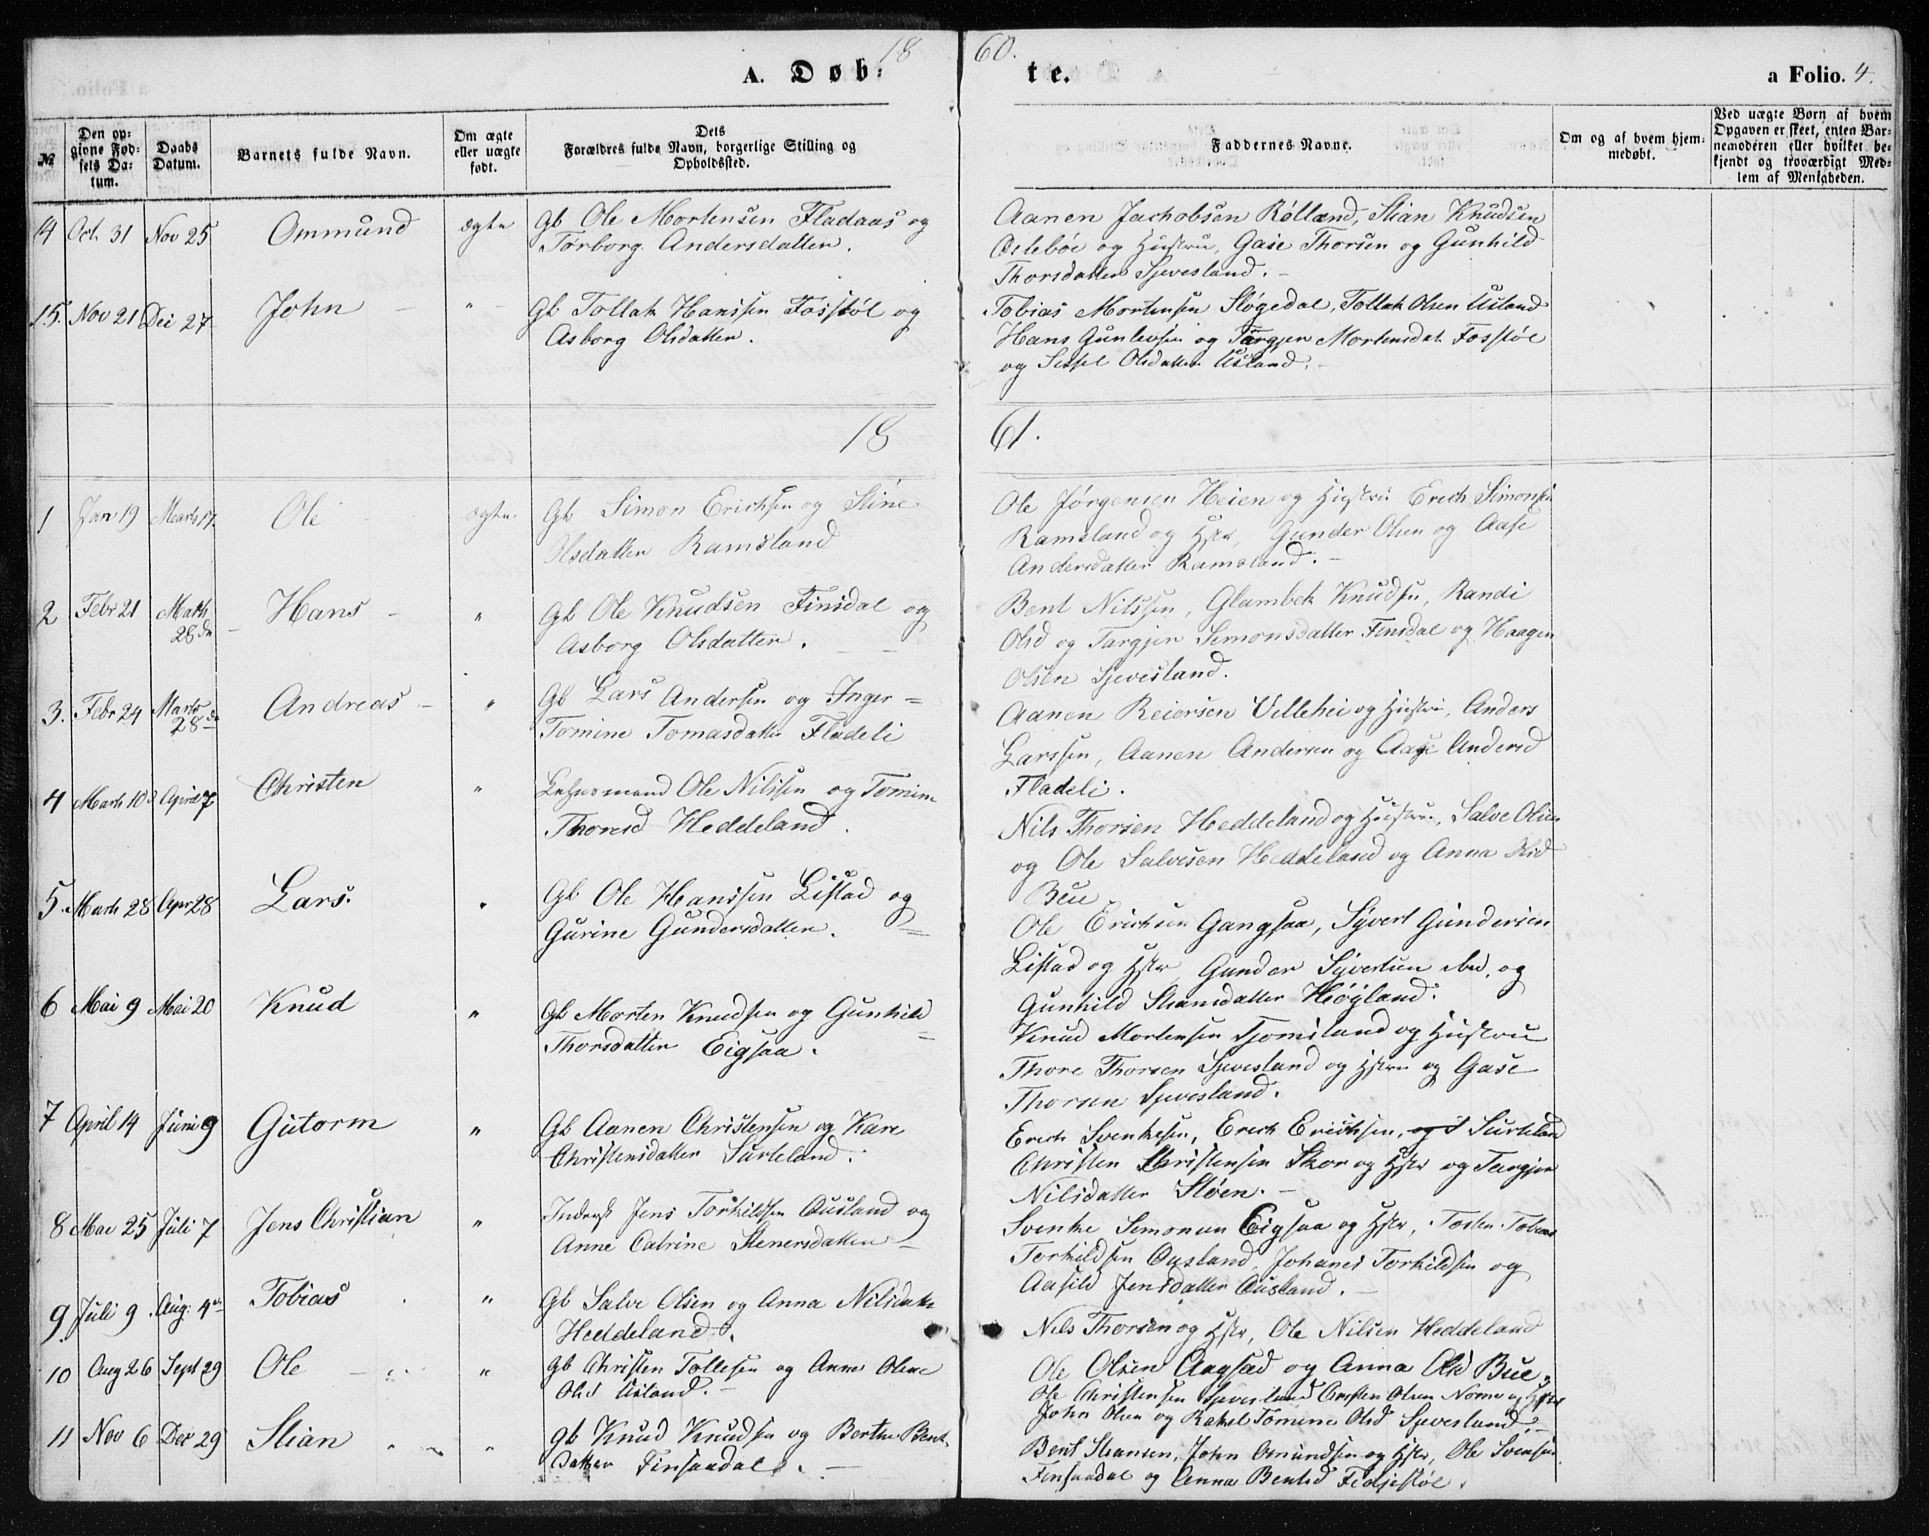 A. Døb: 18
60. te. a Folio. 4.
№
Den opgivne Fødsels Datum.
Daabs Datum.
Barnets fulde Navn.
Om ægte eller uægte født.
Dets
Forældres fulde Navn, borgerlige Stilling og
Opholdssted.
Faddernes Navne.
Om og af hvem hjemmedøbt.
Ved uægte Børn af hvem
Opgaven er skeet, enten Bar-
nemoderen eller hvilket be-
kjendt og troværdigt Med-
lem af Menigheden.
14 Oct. 31 Nov 25 Ommund ægte Gb Ole Mortensen Fladaas og
Torborg Andersdatter.
Aanen Jachobsen Rølland, Stian Knudsen
Oslebøe og Hustru, Gase Thorsen og Gunhild
Thorsdatter Sjevesland. -
15. Nov 21 Dec 27 John - " - Gb Tollak Hanssen Fosstøl og
Asborg Olsdatter.
Tobias Mortensen Sløgedal, Tollak Olsen Usland
Hans Gunlevsen og Targjer Mortensdat. Fosstøl
og Sissel Olsdatter Usland. -
18
61.
1 Jan 19 Marts 17. Ole ægte Gb Simon Erichsen og Stine
Olsdatter Ramsland
Ole Jørgensen Heien og Hustru Erich Simonsen
Ramsland og Hstr, Gunder Olsen og Aase
Andersdatter Ramsland. -
2 Febr 21 Marts 28de Hans - " Gb Ole Knudsen Finsdal og
Asborg Olsdatter.
Bent Nilssen, Glambek Knudsen, Randi
Olsd og Targjer Simonsdatter Finsdal og Haagen
Olsen Sjevesland.
3. Febr 24 Marts 28de Andreas - " Gb Lars Andersen og Inger=
Tomine Tomasdatter Fladeli
Aanen Reiersen Vellehei og Hustru, Anders
Larssen, Aanen Andersen og Aase Andersd
Fladeli.
4 Marts 10 April 7 Christen " Lehnsmand Ole Nilssen og Tomine
Thoresd Heddeland.
Nils Thorsen Heddeland og Hustru, Salve Olsen
og Ole Salvesen Heddeland og Anna Olsd
Bue
5. Marts 28 Apr 28 Lars. " Gb Ole Hanssen Listad og
Gurine Gundersdatter.
Ole Erichsen Gangsaa, Syvert Gundersen
Listad og Hstr Gunder Syvertsen ibd. og
Gunhild Stiansdatter Høyland.
6 Mai 9 Mai 20 Knud " Gb Morten Knudsen og Gunhild
Thorsdatter Eigsaa.
Knud Mortensen Tjomsland og Hustru
Thore Thorsen Sjevesland og Hstru og Gase
Thorsen Sjevesland.
7 April 14 Juni 9 Gutorm " Gb Aanen Christensen og Kare
Christensdatter Surteland.
Erich Svenkesen, Erich Erichsen, Surteland
Christen Christensen Skor og Hstr og Targjer
Nilsdatter Støen. -
8 Mai 25 Juli 7 Jens Christian " Inderst Jens Torkildsen Ousland og
Anne Catrine Stenersdatter -
Svenke Semonsen Eigsaa og Hstr, Tosten Tobias
Torkildsen Ousland, Johanes Torkildsen og
Aasild Jensdatter Ousland. -
9 Juli 9. Aug: 4de Tobias " Gb Salve Olsen og Anna Nilsdatter
Heddeland.
Nils Thorsen og Hstr, Ole Nilsen Heddeland
Ole Olsen Aagstad og Anna Olsd Bue.
10 Aug 26 Sept 29 Ole " Gb Christen Tollefsen og Anne Oline
Olsd Usland. -
Ole Christensen Sjevesland Christen Olsen Nome og Hstr
John Olsen og Rakel Tomine Olsd Sjevesland. -
11 Nov 6 Dec 29 Stian " Gb Knud Knudsen og Berthe Bent-
datter Finsaadal. -
Bent Stiansen, John Omundsen og Hstr, Ole Svensen
Finsaadal og Anna Bentsd Fedjestøl.